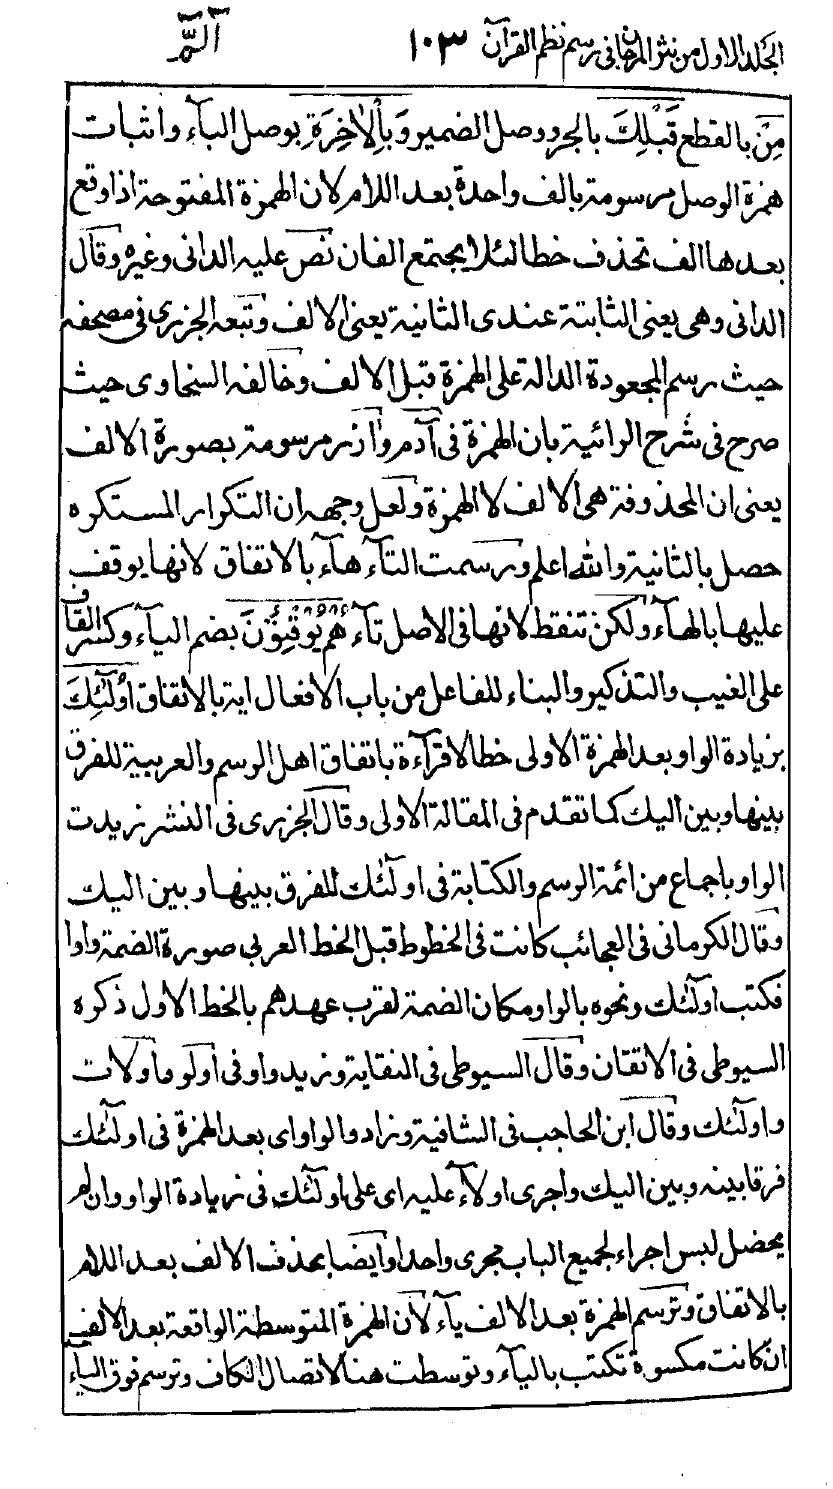 الجلد الاول من نثر المرجان فى رسم نظم القرآن ١٠٣ آلم
مِنْ بالقطع قَبْلِكَ بالجر ووصل الضمير وَبِالْاٰخِرَةِ بوصل البآء واثبات
همزة الوصل مرسومة بالف واحدة بعد اللام لان الهمزة المفتوحة اذا وقع
بعدها الف تحذف خطا لئلا يجتمع الفان نص عليه الدانى وغيره وقال
الدانى وهى يعنى الثابتة عندى الثانية يعنى الالف وتبعه الجزرى فى مصحفه
حيث رسم المجعودة الدالة على الهمزة قبل الالف وخالفه السخاوى حيث
صرح فى شرح الرائية بان الهمزة فى آدم وآزر مرسومة بصورة الالف
يعنى ان المحذوفة هى الالف لا الهمزة ولعل وجهه ان التكرار المستكره
حصل بالثانية والله اعلم ورسمت التآء هآء بالاتفاق لانها يوقف
عليها بالهآء ولكن تنقط لانها فى الاصل تآء هُمْ يُوْقِنُوْنَ بضم اليآء وكسر القاف
على الغيب والتذكير والبناء للفاعل من باب الافعال اية بالاتفاق اُولٰٓئِكَ
بزيادة الواو بعد الهمزة الاولى خطا لا قرآءة باتفاق اهل الرسم والعربية للفرق
بينها وبين اليك كما تقدم فى المقالة الاولى وقال الجزرى فى النشر زيدت
الواو باجماع من ائمة الرسم والكتابة فى اولٰٓئك للفرق بينها وبين اليك
وقال الكرمانى فى العجائب كانت فى الخطوط قبل الخط العربى صورة الضمة واوا
فكتب اولٰٓئك ونحوه بالواو مكان الضمة لقرب عهدهم بالخط الاول ذكره
السيوطى فى الاتقان وقال السيوطى فى النقاية وزيد واو فى اولو واولات
واولٰٓئك وقال ابن الحاجب فى الشافية وزادوا الواو اى بعد الهمزة فى اولٰٓئك
فرقا بينه وبين اليك واجرى اولآء عليه اى على اولٰٓئك فى زيادة الواو وان لم
يحصل لبس اجراء لجميع الباب مجرى واحدا وايضا بحذف الالف بعد اللام
بالاتفاق وترسم الهمزة بعد الالف يآء لان الهمزة المتوسطة الواقعة بعد الالف
ان كانت مكسورة تكتب باليآء وتوسطت هنا لاتصال الكاف وترسم فوق الياء